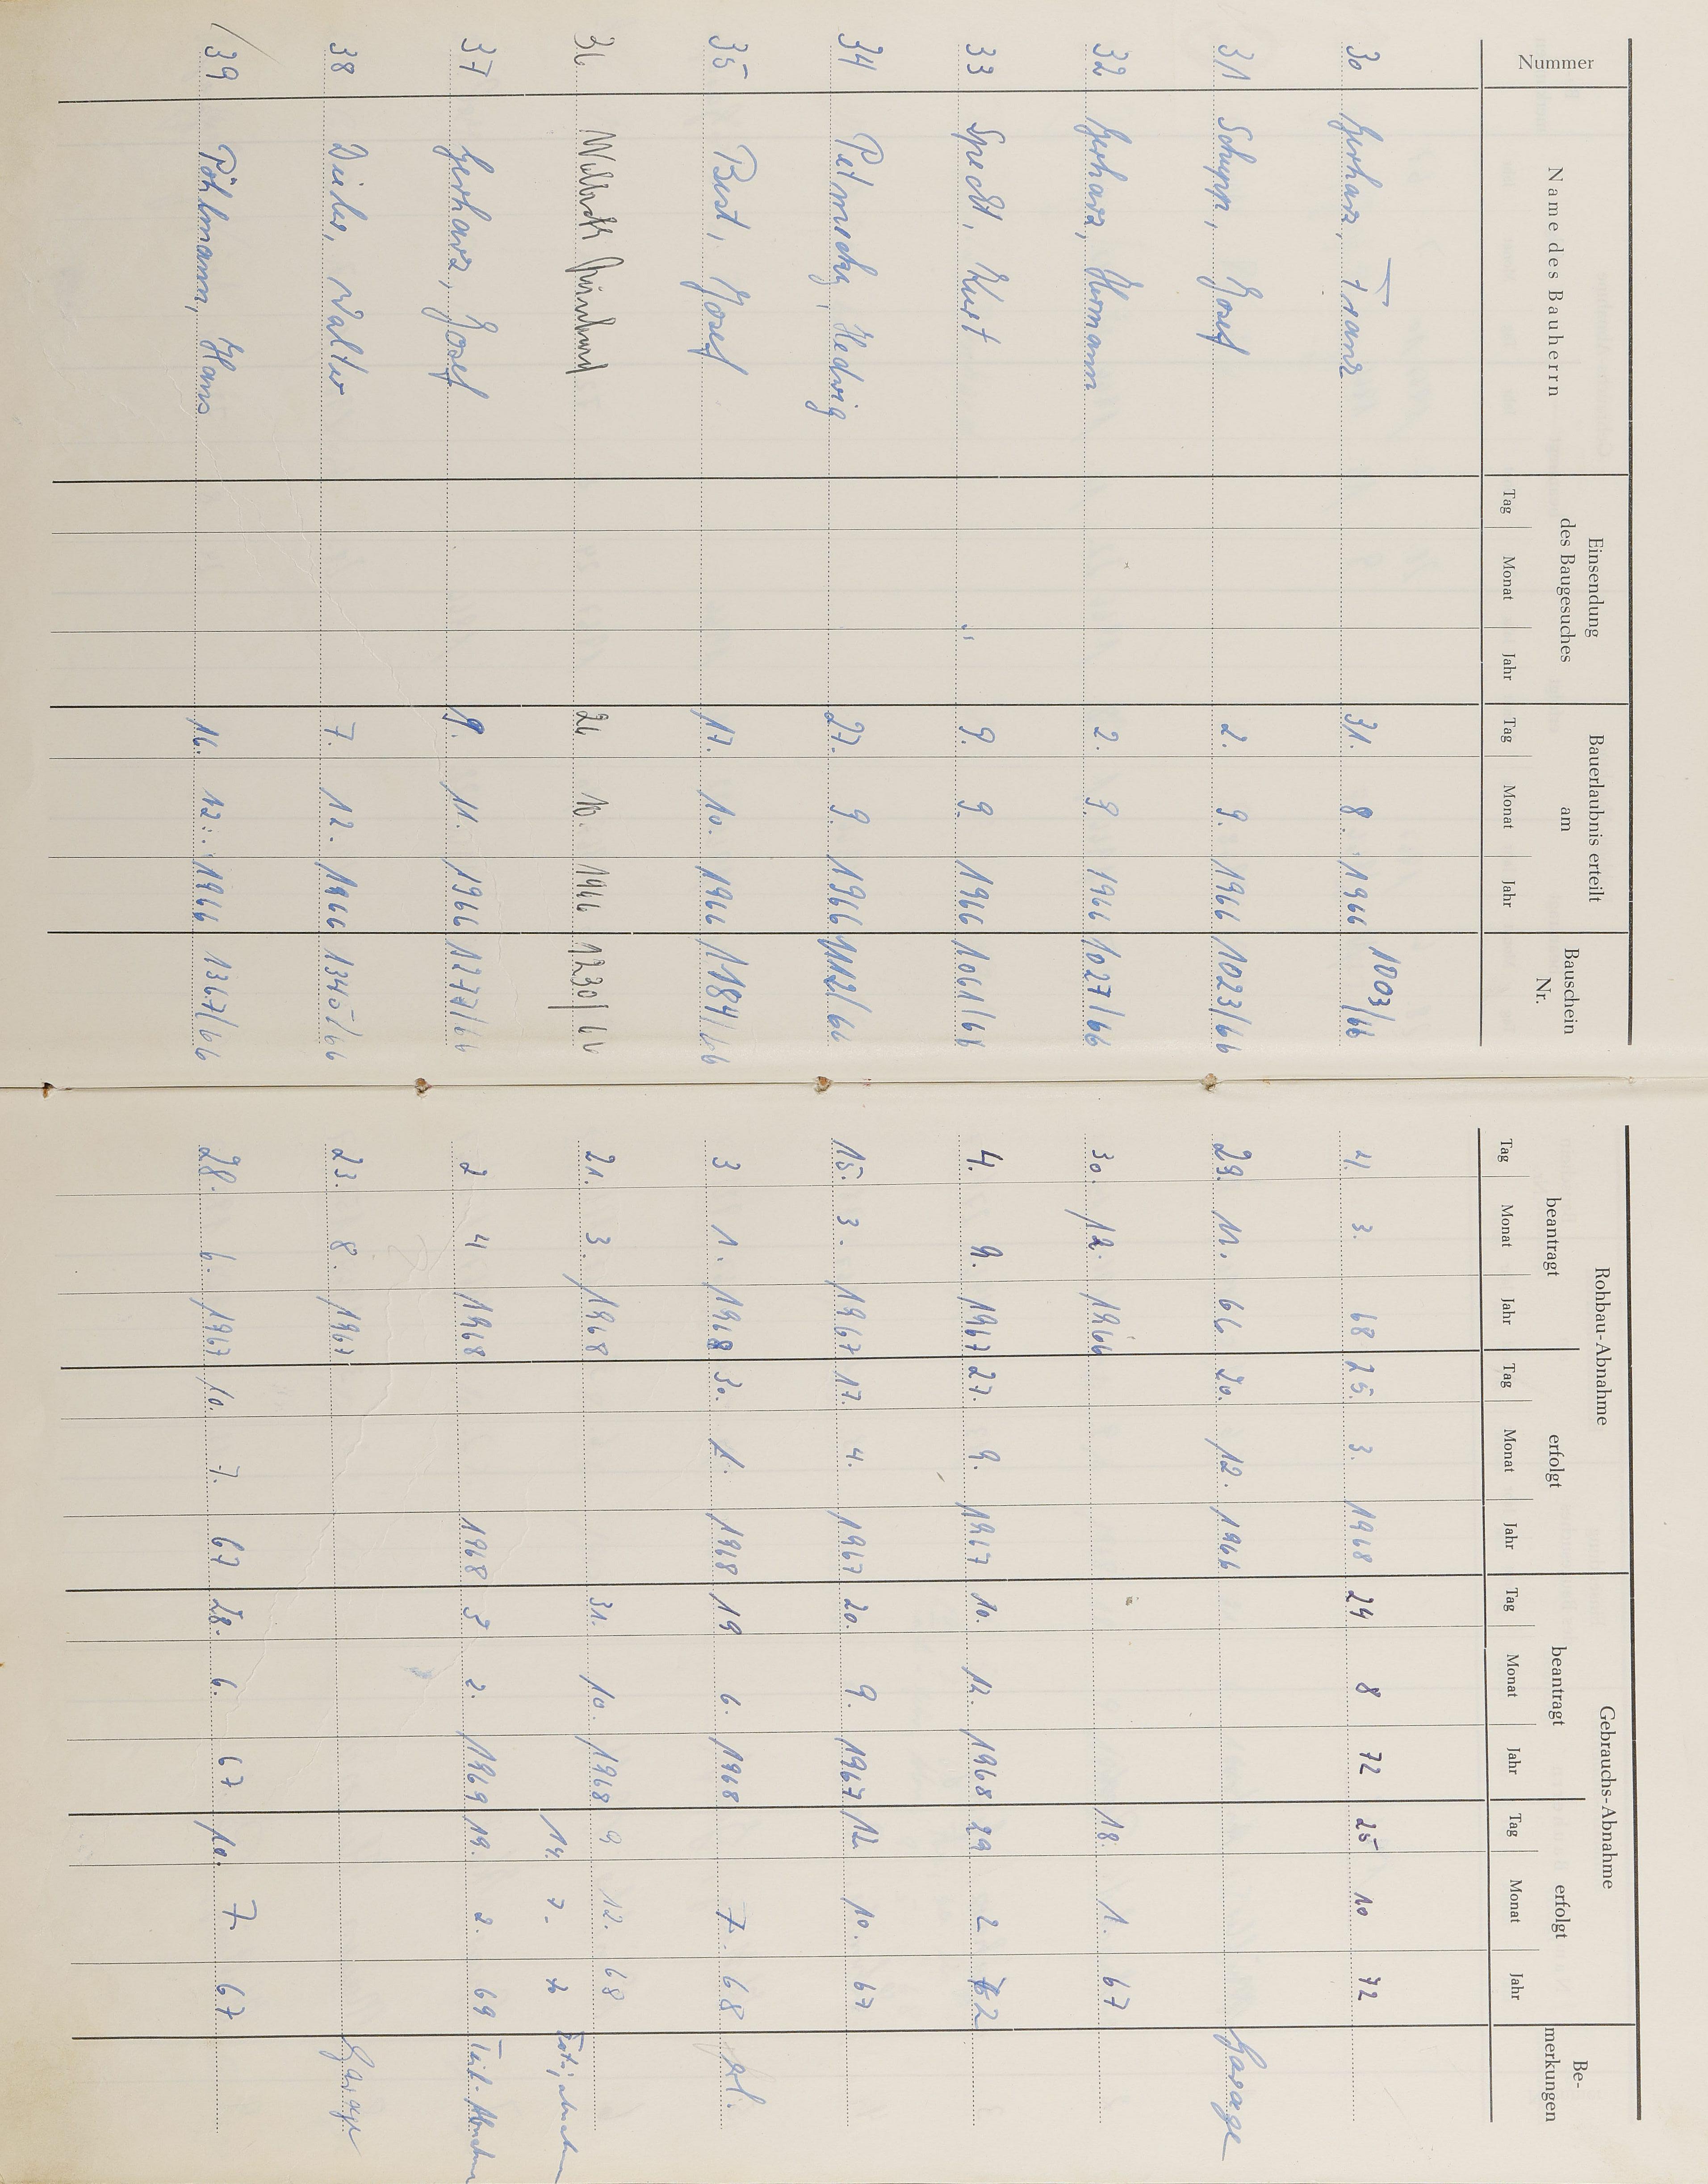 Nummer
Name des Bauherrn
Einsendung des Baugesuches
Tag Monat Jahr
Bauerlaubnis erteilt am
Tag Monat Jahr
Bauschein Nr.
Rohbau-Abnahme
beantragt
Tag Monat Jahr
erfolgt
Tag Monat Jahr
Gebrauchs-Abnahme
beantragt
Tag Monat Jahr
erfolgt
Tag Monat Jahr
Be-
merkungen
30 Gerharz, Franz 31. 8. 1966 1003/66 4. 3. 68 25. 3. 1968 24 8 72 25 10 72
31 Schupp, Josef 2. 9. 1966 1023/66 29. 11. 66 20. 12. 1966 Garage
32 Gerharz, Hermann 2. 9. 1966 1027/66 30. 12. 1966 18. 1. 67
33 Specht, Kurt 9. 9. 1966 1061/66 4. 9. 1967 27. 9. 1967 10. 12. 1968 29 2
34 Hedwig 27. 9. 1966 1112/66 15. 3. 1967 17. 4. 1967 20. 9. 1967 12. 10. 67
35 Bust, Josef 17. 10. 1966 1184/66 3 1. 1968 30. 1. 1968 19 6. 1968 7. 68
36 26 10. 1966 1230/66 21. 3. 1968 31. 10. 1968 9 12. 68
14. 7.
37 Gerharz, Josef 11. 1966 1277/66 2 4 1968 1968 3 2. 1969 19. 2. 69 Teil-Abnahme
38 Walter 7. 12. 1966 1340/66 23. 8. 1967 Garage
39 Pöhlmann, Hans 16. 12. 1966 1367/66 28. 6. 1967 10. 7. 67 28. 6. 67 10. 7. 67